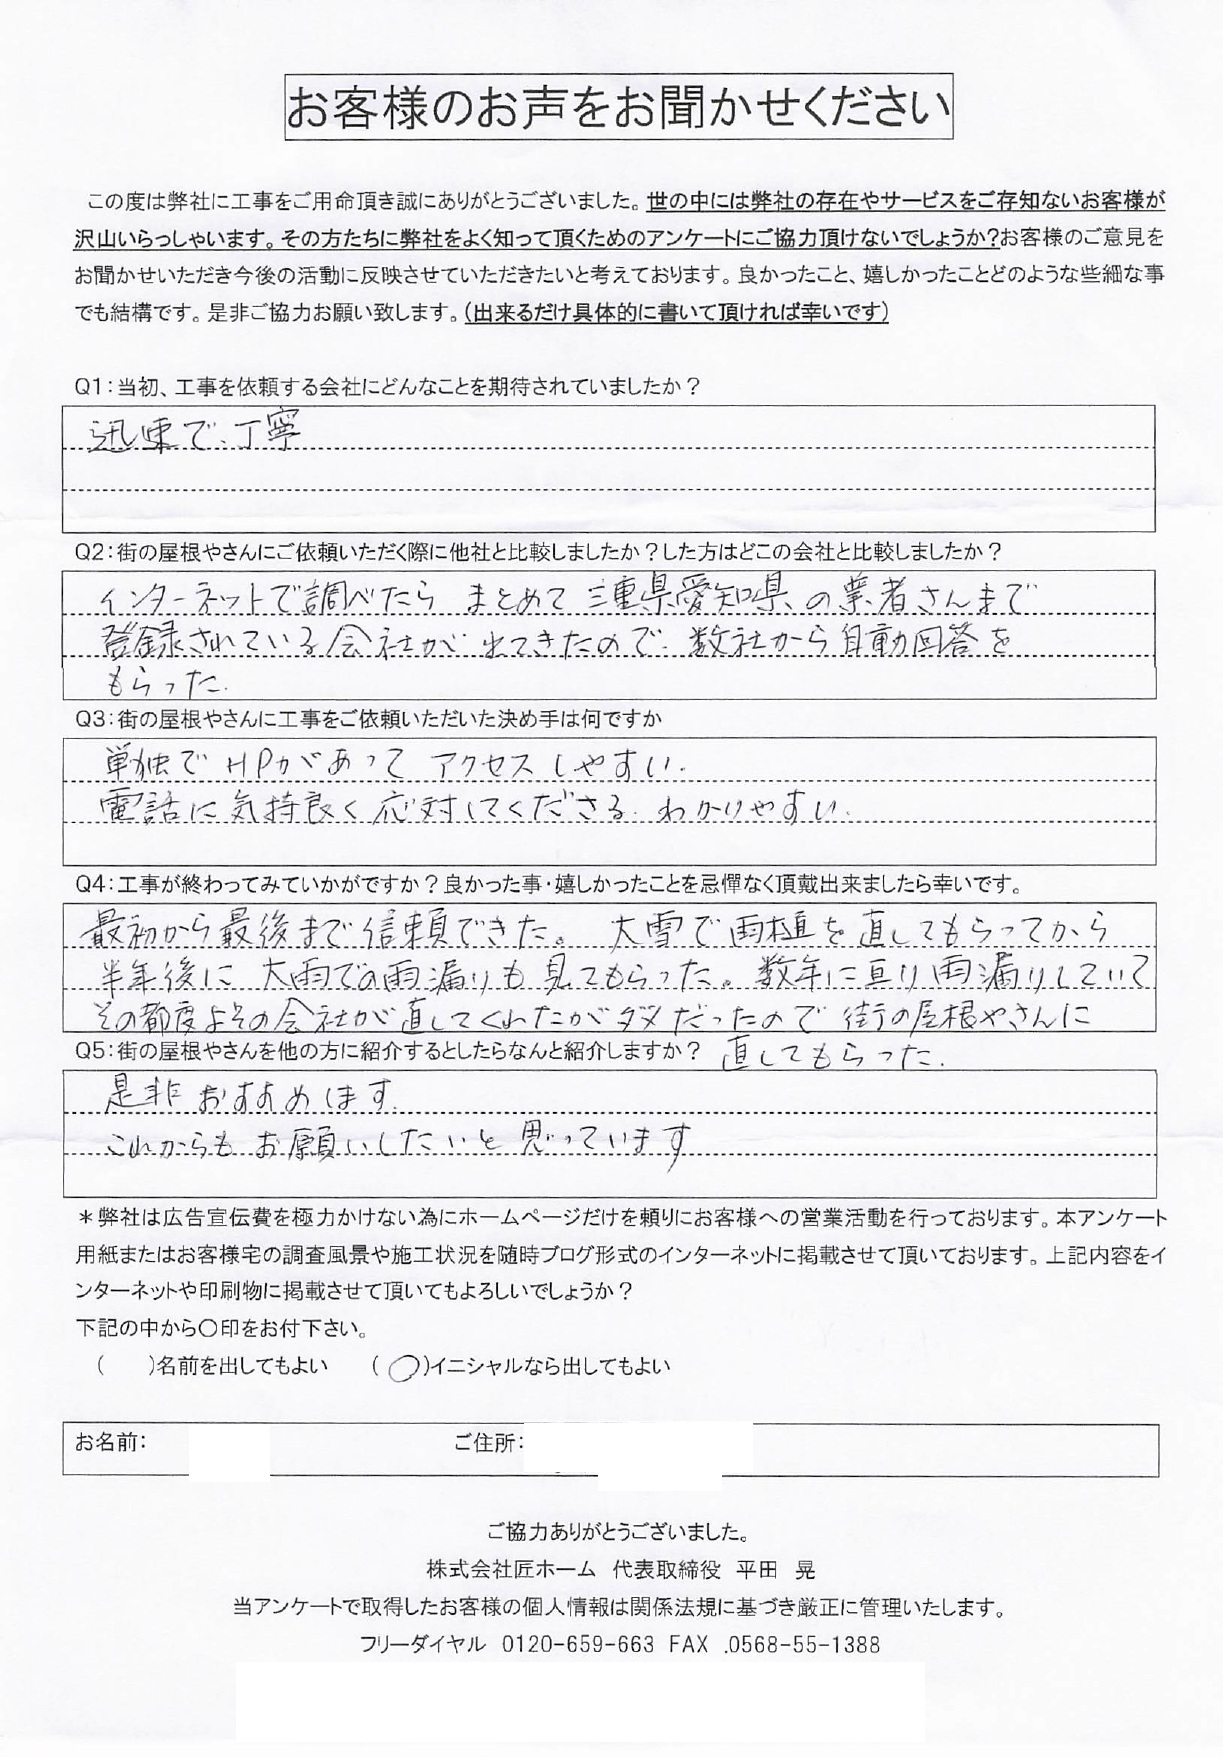 お客様のお声をお聞かせください
この度は弊社に工事をご用命頂き誠にありがとうございました。世の中には弊社の存在やサービスをご存知ないお客様が
沢山いらっしゃいます。その方たちに弊社をよく知って頂くためのアンケートにご協力頂けないでしょうか?お客様のご意見を
お聞かせいただき今後の活動に反映させていただきたいと考えております。良かったこと、嬉しかったことどのような些細な事
でも結構です。是非ご協力お願い致します。(出来るだけ具体的に書いて頂ければ幸いです)
Q1:当初、工事を依頼する会社にどんなことを期待されていましたか?
迅速で、丁寧
Q2:街の屋根やさんにご依頼いただく際に他社と比較しましたか?した方はどこの会社と比較しましたか?
インターネットで調べたら まとめて 三重県愛知県の業者さんまで
登録されている会社が出てきたので、数社から自動回答を
もらった.
Q3:街の屋根やさんに工事をご依頼いただいた決め手は何ですか
単独でHPがあって アクセスしやすい.
電話に気持良く応対してくださる. わかりやすい.
Q4:工事が終わってみていかがですか?良かった事・嬉しかったことを忌憚なく頂戴出来ましたら幸いです。
最初から最後まで信頼できた。 大雪で雨樋を直してもらってから
半年後に 大雨での雨漏りも見てもらった。数年に亘り雨漏りしていて
その都度よその会社が直してくれたがダメだったので街の屋根やさんに
直してもらった.
Q5:街の屋根やさんを他の方に紹介するとしたらなんと紹介しますか?
是非おすすめします.
これからもお願いしたいと思っています
*弊社は広告宣伝費を極力かけない為にホームページだけを頼りにお客様への営業活動を行っております。本アンケート
用紙またはお客様宅の調査風景や施工状況を随時ブログ形式のインターネットに掲載させて頂いております。上記内容をイ
ンターネットや印刷物に掲載させて頂いてもよろしいでしょうか?
下記の中から〇印をお付下さい。
( )名前を出してもよい (○)イニシャルなら出してもよい
お名前: ご住所:
ご協力ありがとうございました。
株式会社匠ホーム 代表取締役 平田 晃
当アンケートで取得したお客様の個人情報は関係法規に基づき厳正に管理いたします。
フリーダイヤル 0120-659-663 FAX .0568-55-1388